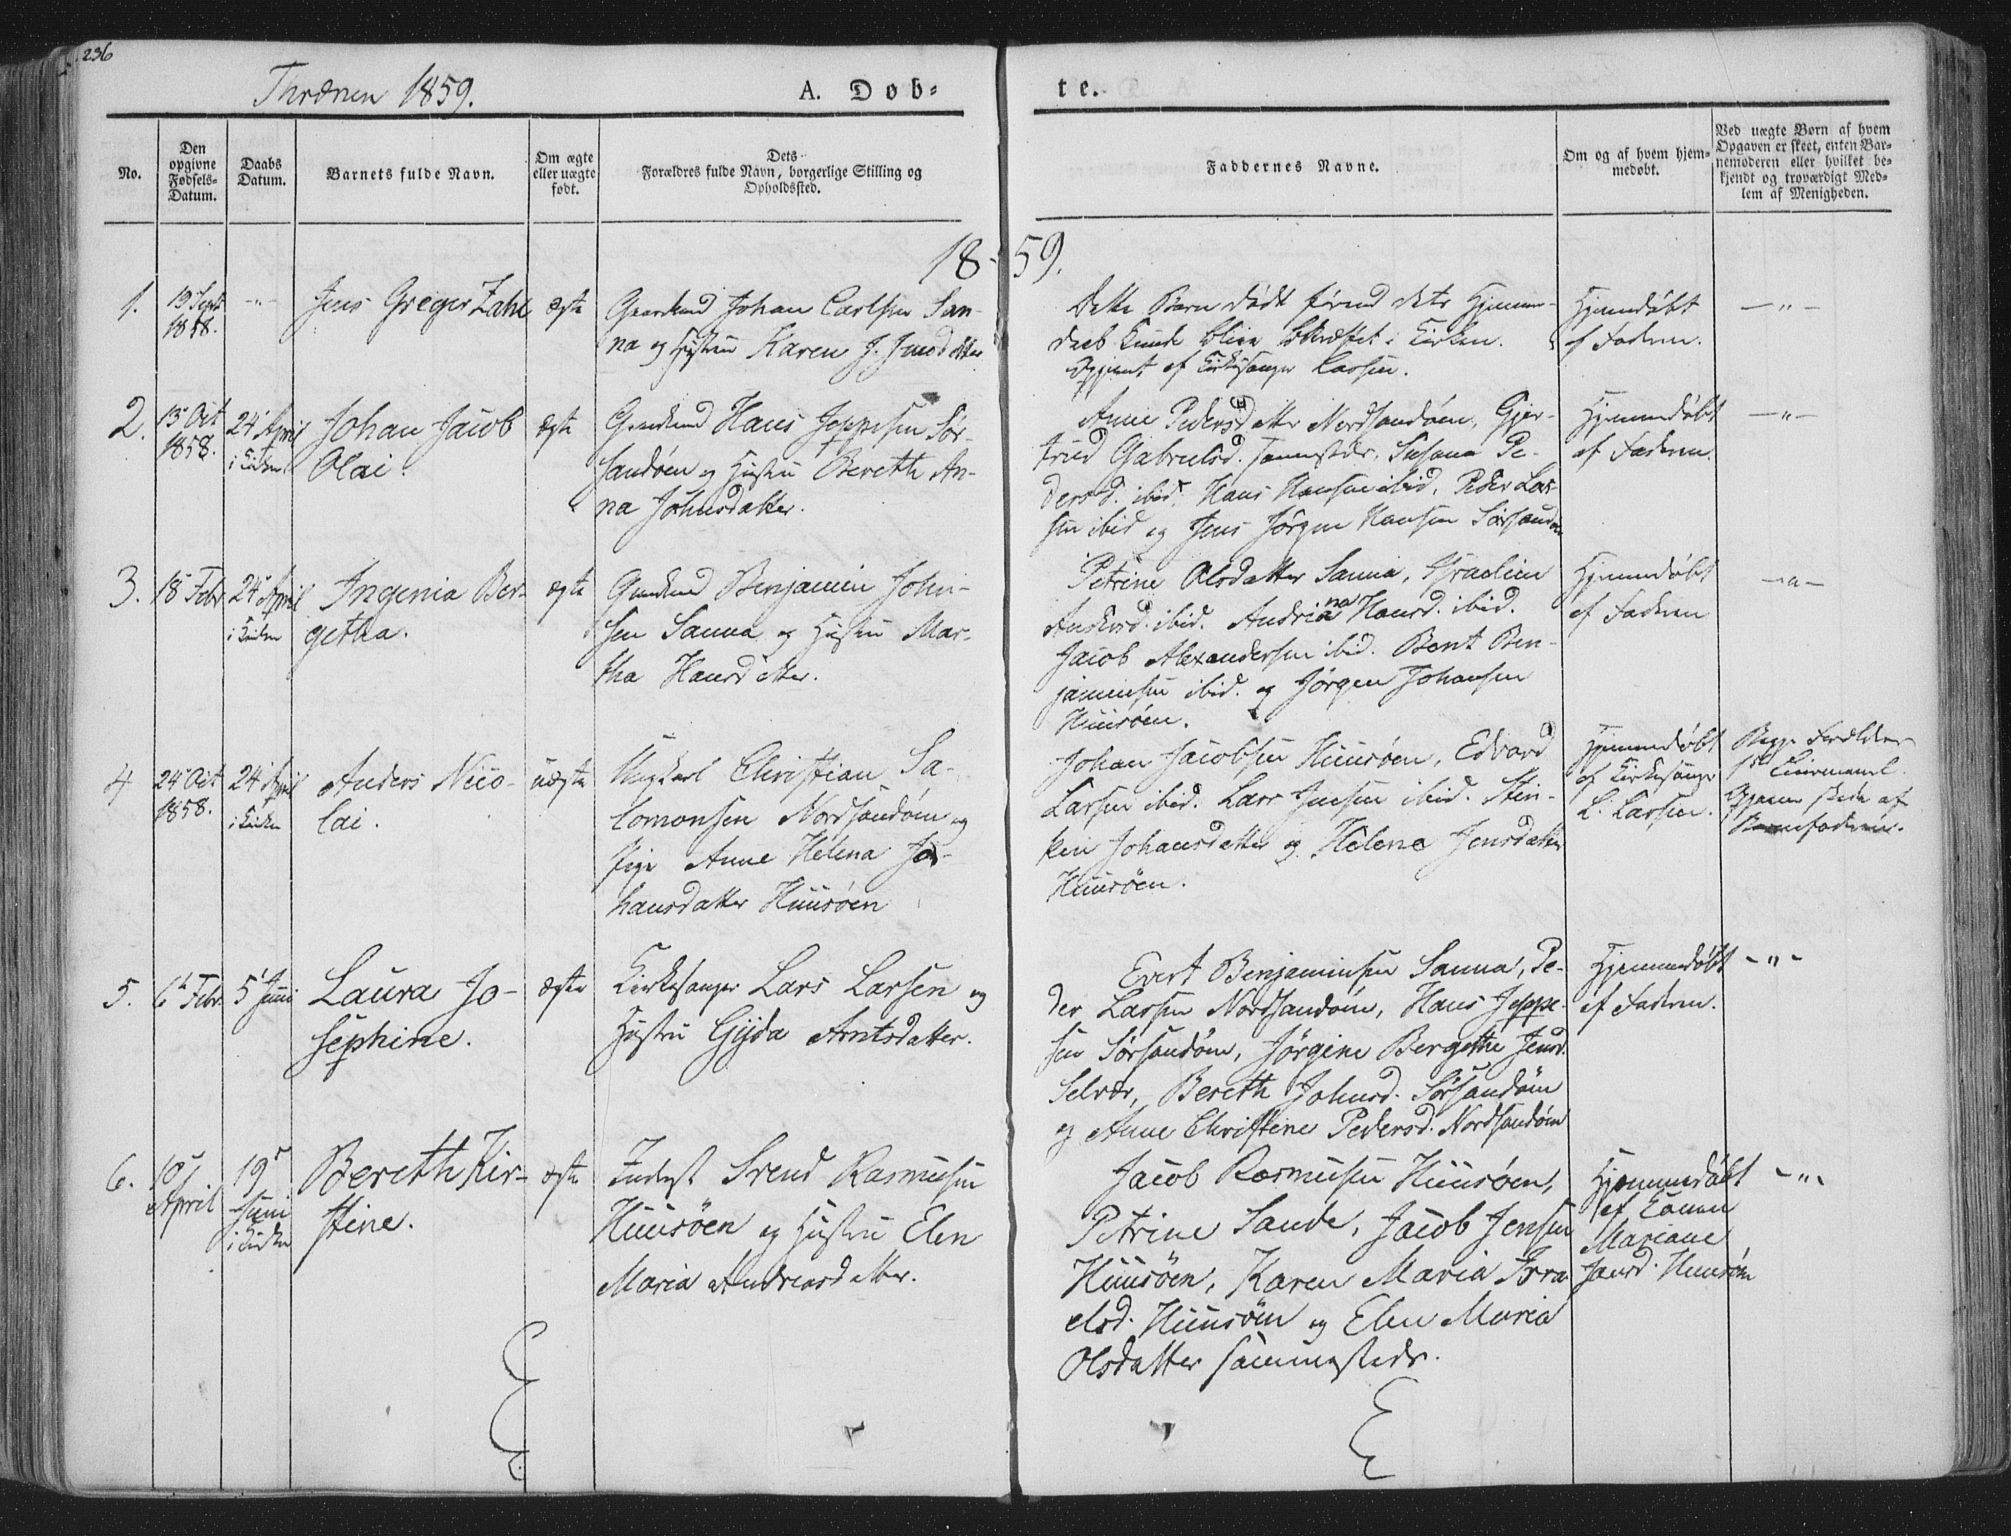 236
Thrænen 1859.
A. Dob-
te.
No.
Den
opgivne
Fødsels-
Datum.
Daabs
Datum.
Barnets fulde Navn.
Om ægte
eller uægte
født.
Dets
Forældres fulde Navn, borgerlige Stilling og
Opholdssted.
Faddernes Navne.
Om og af hvem hjem-
medøbt.
Ved uægte Børn af hvem
Opgaven er skeet, enten Bar-
nemoderen eller hvilket be-
kjendt og troværdigt Med-
lem af Menigheden.
18-59.
1.
19 Septr
1858.
-"-
Jens Greger Zahl
ægte
Gaardmd Johan Carlsen San-
na og Hustru Karen J. Jensdatter
Dette Barn døde førend dets Hjemme-
daab kunde blive bekræftet i Kirken.
af Kirkesanger Larsen.
Hjemmedøbt
af Faderen.
-"-
2.
13 Oct
1858.
24 April
i Kirken
Johan Jacob
Olai.
ægte
Gaardmd Hans Jeppesen Sør-
sandøen og Hustru Bereth An-
na Johnsdatter.
Anne Pedersdatter Nordsandøen, Gjer-
trud Gabrielsd. sammesteds, Susana Pe-
dersd. ibid. Hans Hansen ibid, Peder Lar-
sen ibid og Jens Jörgen Hansen Sørsandøen
Hjemmedøbt
af Faderen.
-"-
3.
18 Febr
24 April
i Kirken
Ingenia Ber-
getha.
ægte
Gaardmd Benjamin John-
sen Sanna og Hustru Mar-
tha Hansdatter.
Petrine Olsdatter Sanna,
ibid. Andriana Hansd. ibid.
Jacob Alexandersen ibid. Bent Ben-
jaminsen ibid. og Jørgen Johansen
Huusöen.
Hjemmedøbt
af Faderen
-"-
4
24 Oct
1858.
24 April
i Kirken
Anders Nico-
lai.
uægte
Ungkarl Christian Sa-
lomonsen Nordsandøen og
Pige Anne Helena Jo-
hansdatter Huusöen
Johan Jacobsen Huusöen, Edvard
Larsen ibid. Lars Jensen ibid. Stin-
ken Johansdatter og Helene Jensdatter
Huusöen.
Hjemmedøbt
af Kirkesanger
L. Larsen.
Begge Forældre
skede af
Barnefaderen.
5.
6 Febr.
5 Juni
Laura Jo-
sephine.
ægte
Kirkesanger Lars Larsen og
Hustru Gjida Arntsdatter.
Evert Benjaminsen Sanna, Pe-
der Larsen Nordsandøen, Hans Jeppe-
sen Sørsandøen, Jørgine Bergethe Jensd.
Selvær, Bereth Johnsd. Sørsandøen
og Anne Christine Pedersd. Nordsandøen
Hjemmedøbt
af Faderen.
-"-
6.
10
April
19
Juni
i Kirken
Bereth Kir-
stine.
ægte
Inderst Svend Rasmusen
Huusöen og Hustru Elen
Maria Andreasdatter.
Jacob Rasmusen Huusöen,
Petrine Sande, Jacob Jensen
Huusöen, Karen Maria Isra-
elsd. Huusöen og Elen Maria
Olsdatter sammesteds.
Hjemmedøbt
af Konen
Mariane
Jensd. Huusöen
-"-